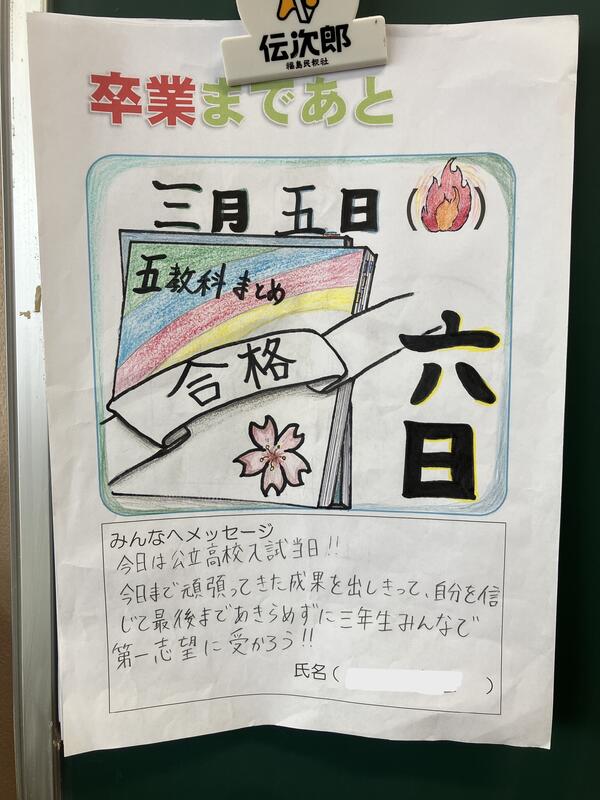 伝次郎
福島民報社
卒業まであと
三月五日(  )
五教科まとめ
合格
六日
みんなへメッセージ
今日は公立高校入試当日!!
今日まで頑張ってきた成果を出しきって、自分を信
じて最後まであきらめずに三年生みんなで
第一志望に受かろう!!
氏名(  )